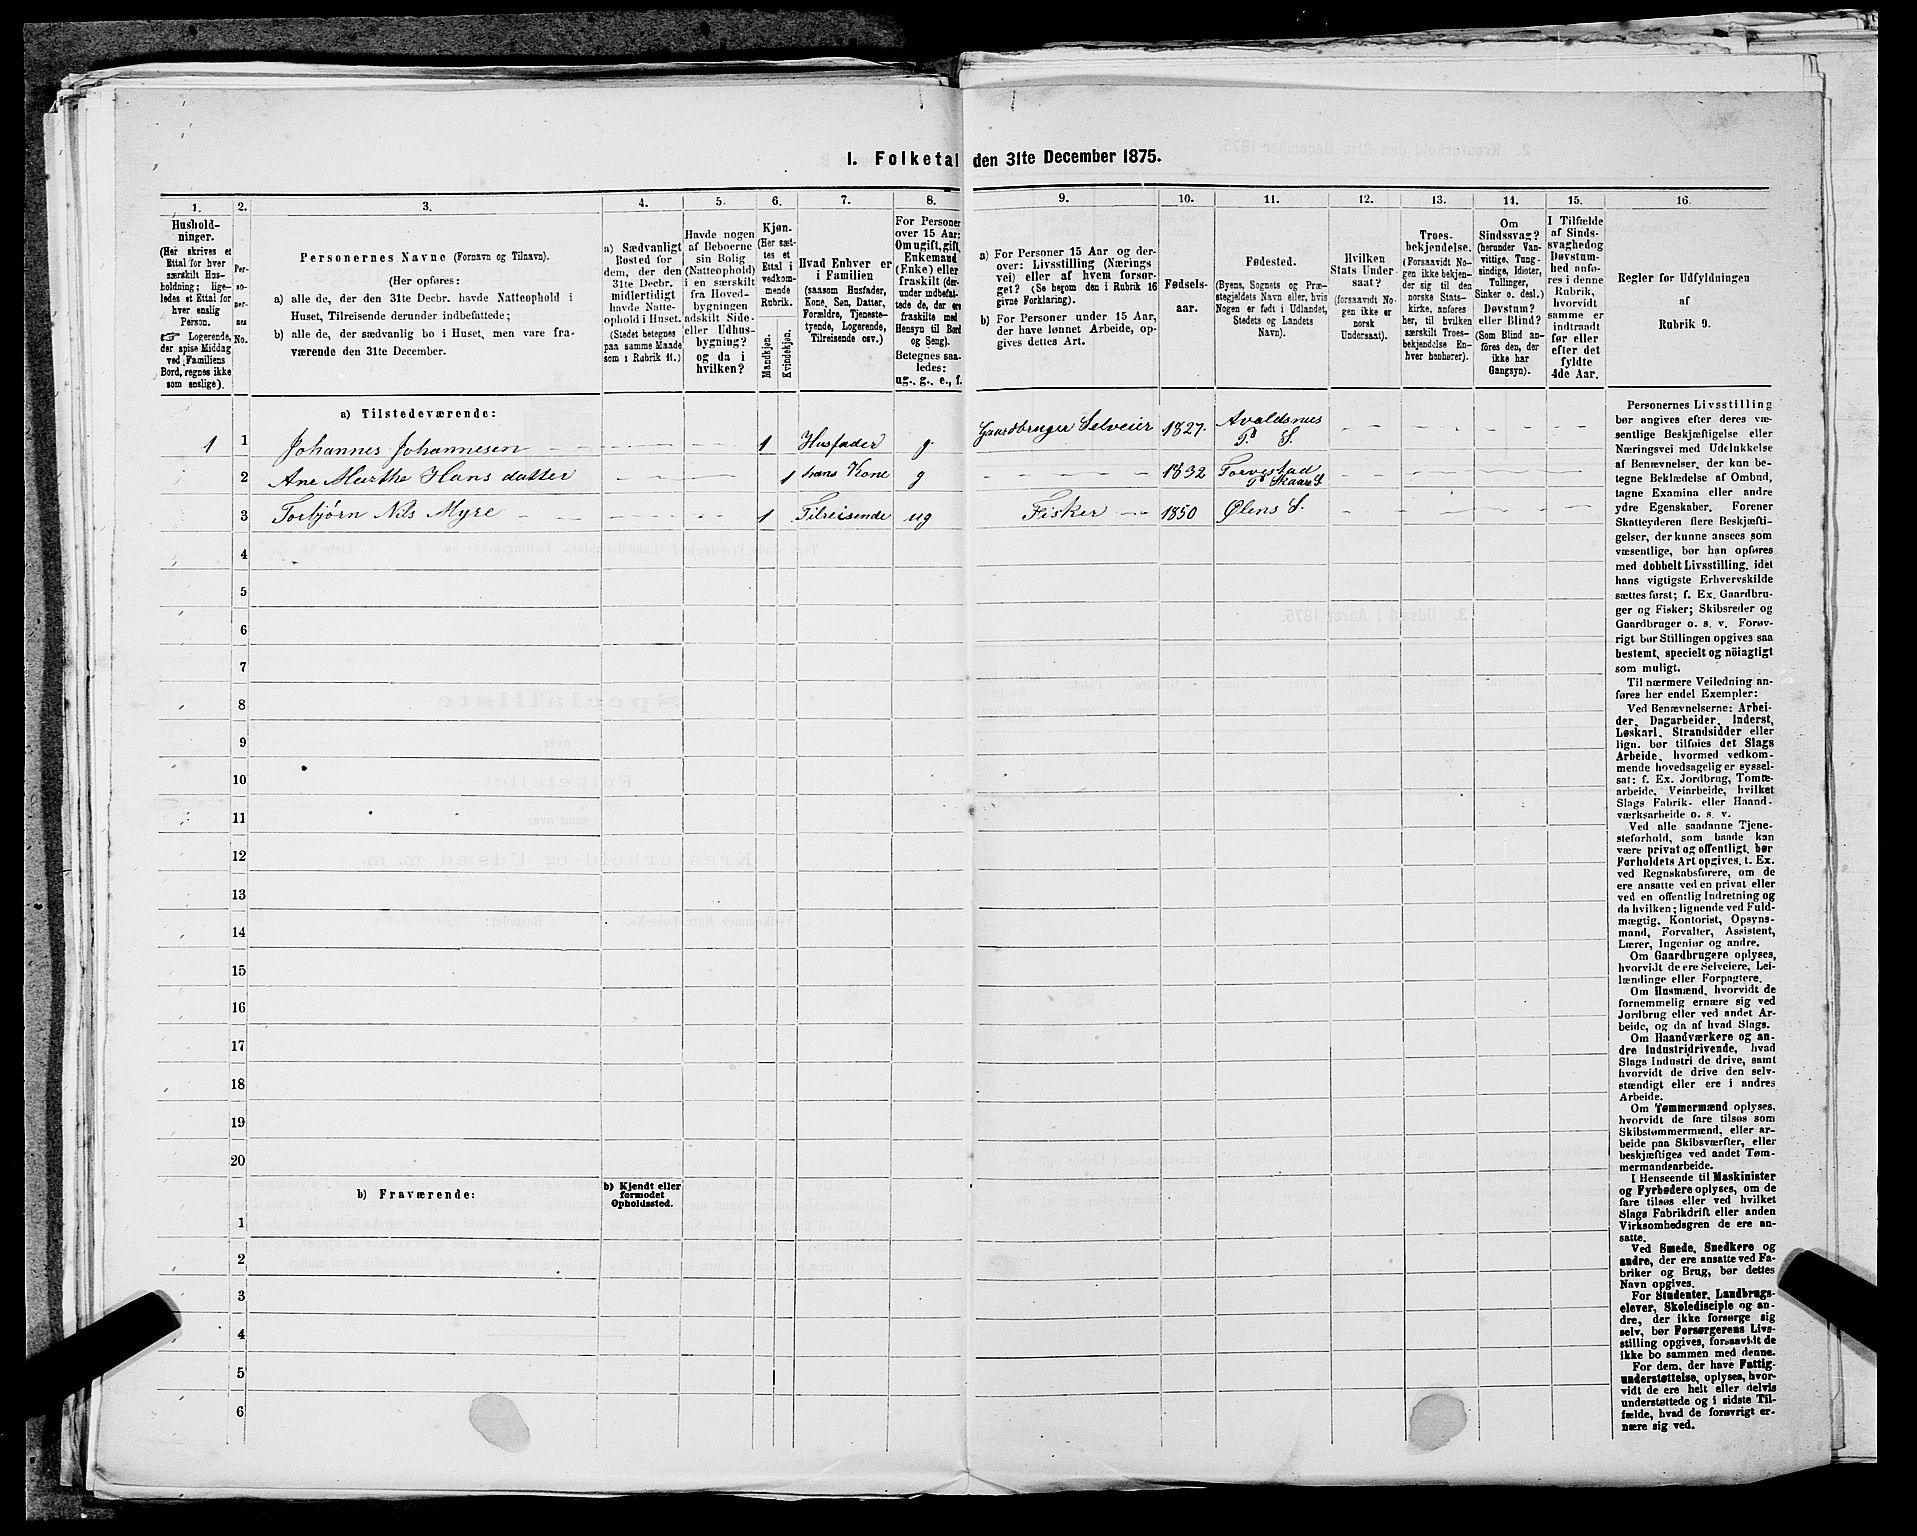 I. Folketal den 31te December 1875.
1. 2. 3. 4. 5. 6. 7. 8. 9. 10. 11. 12. 13. 14. 15. 16.
Hushold-
ninger.
(Her skrives et
Ettal for hver
særskilt Hus-
holdning; lige-
ledes et Ettal for
hver enslig
Person.
☞ Logerende,
der spise Middag
ved Familiens
Bord, regnes ikke
som enslige).
Per-
so-
ner-
nes
No.
Personernes Navne (Fornavn og Tilnavn).
(Her opføres:
a) alle de, der den 31te Decbr. havde Natteophold i
Huset, Tilreisende derunder indbefattede;
b) alle de, der sædvanlig bo i Huset, men vare fra-
værende den 31te December.
a) Sædvanligt
Bosted for
dem, der den
31te Decbr.
midlertidigt
havde Natte-
ophold i Huset.
(Stedet betegnes
paa samme Maade
som i Rubrik 11.)
Havde nogen
af Beboerne
sin Bolig
(Natteophold)
i en særskilt
fra Hoved-
bygningen
adskilt Side-
eller Udhus-
bygning?
og da i
hvilken?
Kjøn.
(Her sæt-
tes et
Ettal i
vedkom-
mende
Rubrik.
Mandkjøn.
Kvindekjøn.
Hvad Enhver er
i Familien
(saasom Husfader,
Kone, Søn, Datter,
Forældre, Tjeneste-
tyende, Logerende,
Tilreisende osv.)
For Personer
over 15 Aar:
Om ugift, gift,
Enkemand
(Enke) eller
fraskilt (der-
under indbefat-
tede de, der ere
fraskilte med
Hensyn til Bord
og Seng).
Betegnes saa-
ledes:
ug., g., e., f.
a) For Personer 15 Aar og der-
over: Livsstilling (Nærings-
vei) eller af hvem forsør-
get? (Se herom den i Rubrik 16
givne Forklaring).
b) For Personer under 15 Aar,
der have lønnet Arbeide, op-
gives dettes Art.
Fødsels-
aar.
Fødested.
(Byens, Sognets og Præ-
stegjeldets Navn eller, hvis
Nogen er født i Udlandet,
Stedets og Landets
Navn).
Hvilken
Stats Under-
saat?
(forsaavidt No-
gen ikke er
norsk
Undersaat).
Troes-
bekjendelse.
(Forsaavidt No-
gen ikke bekjen-
der sig til den
norske Stats-
kirke, anføres
her, til hvilken
særskilt Troes-
bekjendelse En-
hver henhører).
Om
Sindssvag?
(herunder Van-
vittige, Tung-
sindige, Idioter,
Tullinger,
Sinker o. desl.)
Døvstum?
eller Blind?
(Som Blind an-
føres den, der
ikke har
Gangsyn).
I Tilfælde
af Sinds-
svaghed og
Døvstum-
hed anfø-
res i denne
Rubrik,
hvorvidt
samme er
indtraadt
før eller
efter det
fyldte
4de Aar.
Regler for Udfyldningen
af
Rubrik 9.
a) Tilstedeværende:
1 1 Johannes Johannesen 1 Husfader g. Gaardbruger Selveier 1827. Avaldsnes
P S.
2 Ane Martha Hans datter 1 hans Kone g 1832 Torvestad
P Skaare S
3 Torbjørn Nils Myre 1 Tilreisende ug Fisker 1850 Ølens S.
4
5
6
7
8
9
10
11
12
13
14
15
16
17
18
19
20
b) Fraværende:
b) Kjendt eller
formodet
Opholdssted.
1
2
3
4
5
6
Personernes Livsstilling
bør angives efter deres væ-
sentlige Beskjæftigelse eller
Næringsvei med Udelukkelse
af Benævnelser, der kun be-
tegne Beklædelse af Ombud,
tagne Examina eller andre
ydre Egenskaber. Forener
Skatteyderen flere Beskjæfti-
gelser, der kunne ansees som
væsentlige, bør han opføres
med dobbelt Livsstilling, idet
hans vigtigste Erhvervskilde
sættes først; f. Ex. Gaardbru-
ger og Fisker; Skibsreder og
Gaardbruger o. s. v. Forøv-
rigt bør Stillingen opgives saa
bestemt, specielt og nöiagtigt
som muligt.
Til nærmere Veiledning an-
føres her endel Exempler:
Ved Benævnelserne: Arbei-
der, Dagarbeider, Inderst,
Løskarl, Strandsidder eller
lign. bør tilføies det Slags
Arbeide, hvormed vedkom-
mende hovedsagelig er syssel-
sat; f. Ex. Jordbrug, Tomte-
arbeide, Veiarbeide, hvilket
Slags Fabrik- eller Haand-
værksarbeide o. s. v.
Ved alle saadanne Tjene-
steforhold, som baade kan
være privat og offentligt, bør
Forholdets Art opgives, t. Ex.
ved Regnskabsførere, om de
ere ansatte ved en privat eller
ved en offentlig Indretning og
da hvilken; lignende ved Fuld-
mægtig, Kontorist, Opsyns-
mand, Forvalter, Assistent,
Lærer, Ingeniør og andre.
Om Gaardbrugere oplyses,
hvorvidt de ere Selveiere, Lei-
lændinge eller Forpagtere.
Om Husmænd, hvorvidt de
fornemmelig ernære sig ved
Jordbrug eller ved andet Ar-
beide, og da af hvad Slags.
Om Haandværkere og an-
dre Industridrivende, hvad
Slags Industri de drive, samt
hvorvidt de drive den selv-
stændigt eller ere i andres
Arbeide.
Om Tømmermænd oplyses,
hvorvidt de fare tilsøs som
Skibstømmermænd, eller ar-
beide paa Skibsværfter, eller
beskjæftiges ved andet Tøm-
mermandsarbeide.
I Henseende til Maskinister
og Fyrbødere oplyses, om de
fare tilsøs eller ved hvilket
Slags Fabrikdrift eller anden
Virksomhedsgren de ere an-
satte.
Ved Smede, Snedkere og
andre, der ere ansatte ved Fa-
briker og Brug, bør dettes
Navn opgives.
For Studenter, Landbrugs-
elever, Skoledisciple og an-
dre, der ikke forsørge sig
selv, bør Forsørgerens Livs-
stilling opgives, forsaavidt de
ikke bo sammen med denne.
For dem, der have Fattig-
understøttelse, oplyses, hvor-
vidt de ere helt eller delvis
understøttede og i sidste Til-
fælde, hvad de forøvrigt er-
nære sig ved.